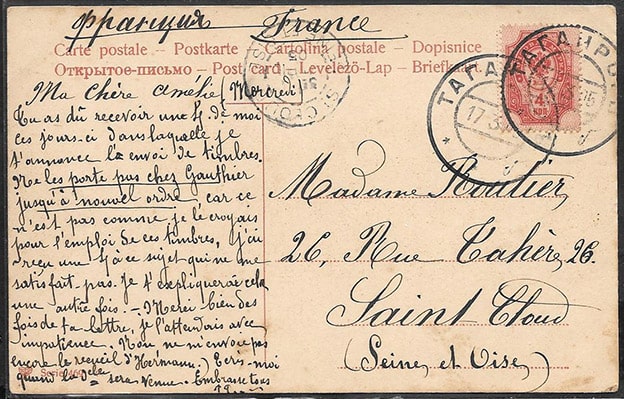 Франция France
Carte postale – Postkarte – Cartolina postale – Dopisnice
Открытое письмо – Post card – Levelező-Lap – Briefk
Ma Chère Amélie (Mercredi)
Tu as dû recevoir une L de moi
ces jours-ci dans laquelle je
t'annonce l'envoi de timbres.
Ne les porte pas chez Gauthier
jusqu'à nouvel ordre, car ce
n'est pas comme je le croyais
pour l'emploi de ces timbres, j'ai
reçu une L à ce sujet qui ne me
satisfait pas. Je t'expliquerai cela
une autre fois. – Merci bien des
fois de ta lettre, je l'attendais avec
impatience. Non ne m'envoie pas
encore le recueil d'Hermann.) Ecris-moi
quand le sera venue. Embrasse tous
Serie
ТАГА
17.3
ТАГАНРО
4
КОП
ST CLOUD
Madame Routier
26, Rue Tahère, 26.
Saint Cloud
(Seine et Oise)